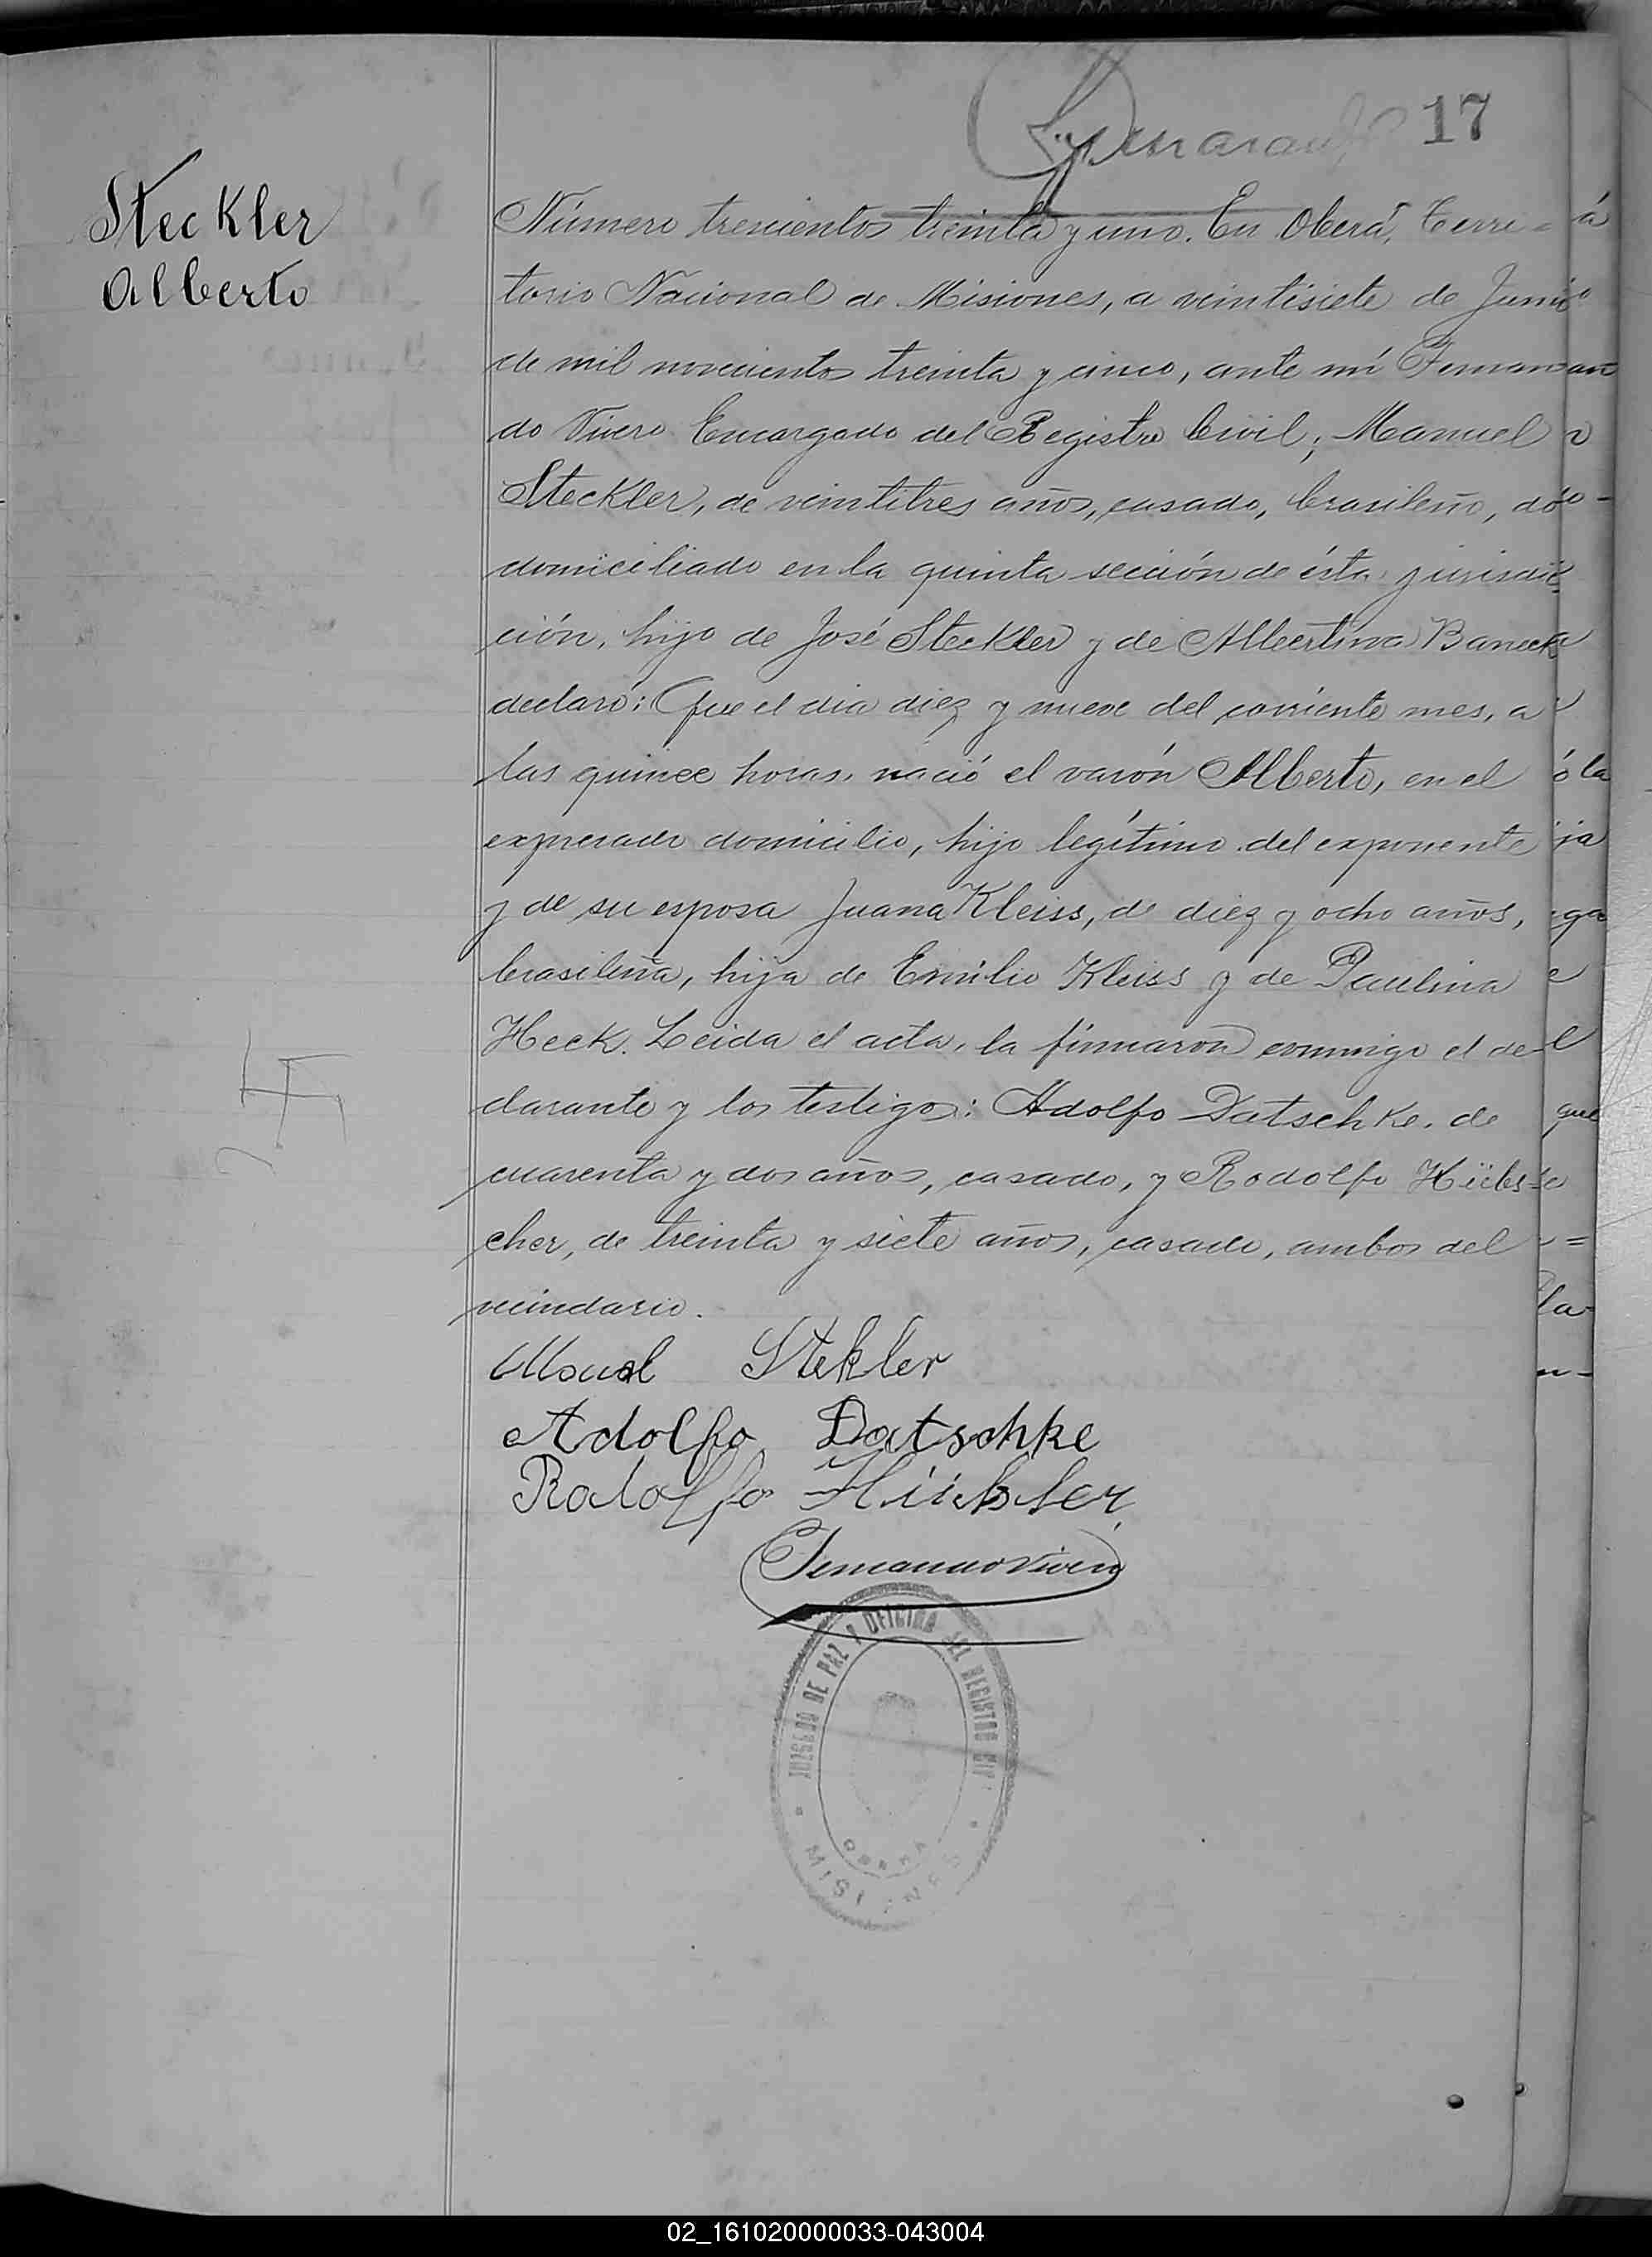 17
Steckler
Alberto
Número trescientos treinta y uno. En Oberá, Terri=
torio Nacional de Misiones, a veintisiete de Junio
de mil novecientos treinta y cinco, ante mí Fernan
do Vivero Encargado del Registro Civil; Manuel
Steckler, de veintitres años, casado, brasileño, do
domiciliado en la quinta sección de ésta jurisdic
ción, hijo de José Steckler y de Albertina Baneck
declaró: Que el dia diez y nueve del corriente mes, a
las quince horas, nació el varón Alberto, en el
expresado domicilio, hijo legítimo del exponente
y de su esposa Juana Kleiss, de diez y ocho años,
brasileña, hija de Emilio Kleiss y de Paulina
Heck. Leida el acta, la firmaron conmigo el de-
clarante y los testigos: Adolfo Datschke, de
cuarenta y dos años, casado, y Rodolfo Hübs-
cher, de treinta y siete años, casado, ambos del
vecindario.
Stekler
Adolfo Datschke
Rodolfo
Fernando Vivero
JUZGADO DE PAZ Y OFICINA DEL REGISTRO CIVI
OBERA
MISIONES
02_161020000033-043004